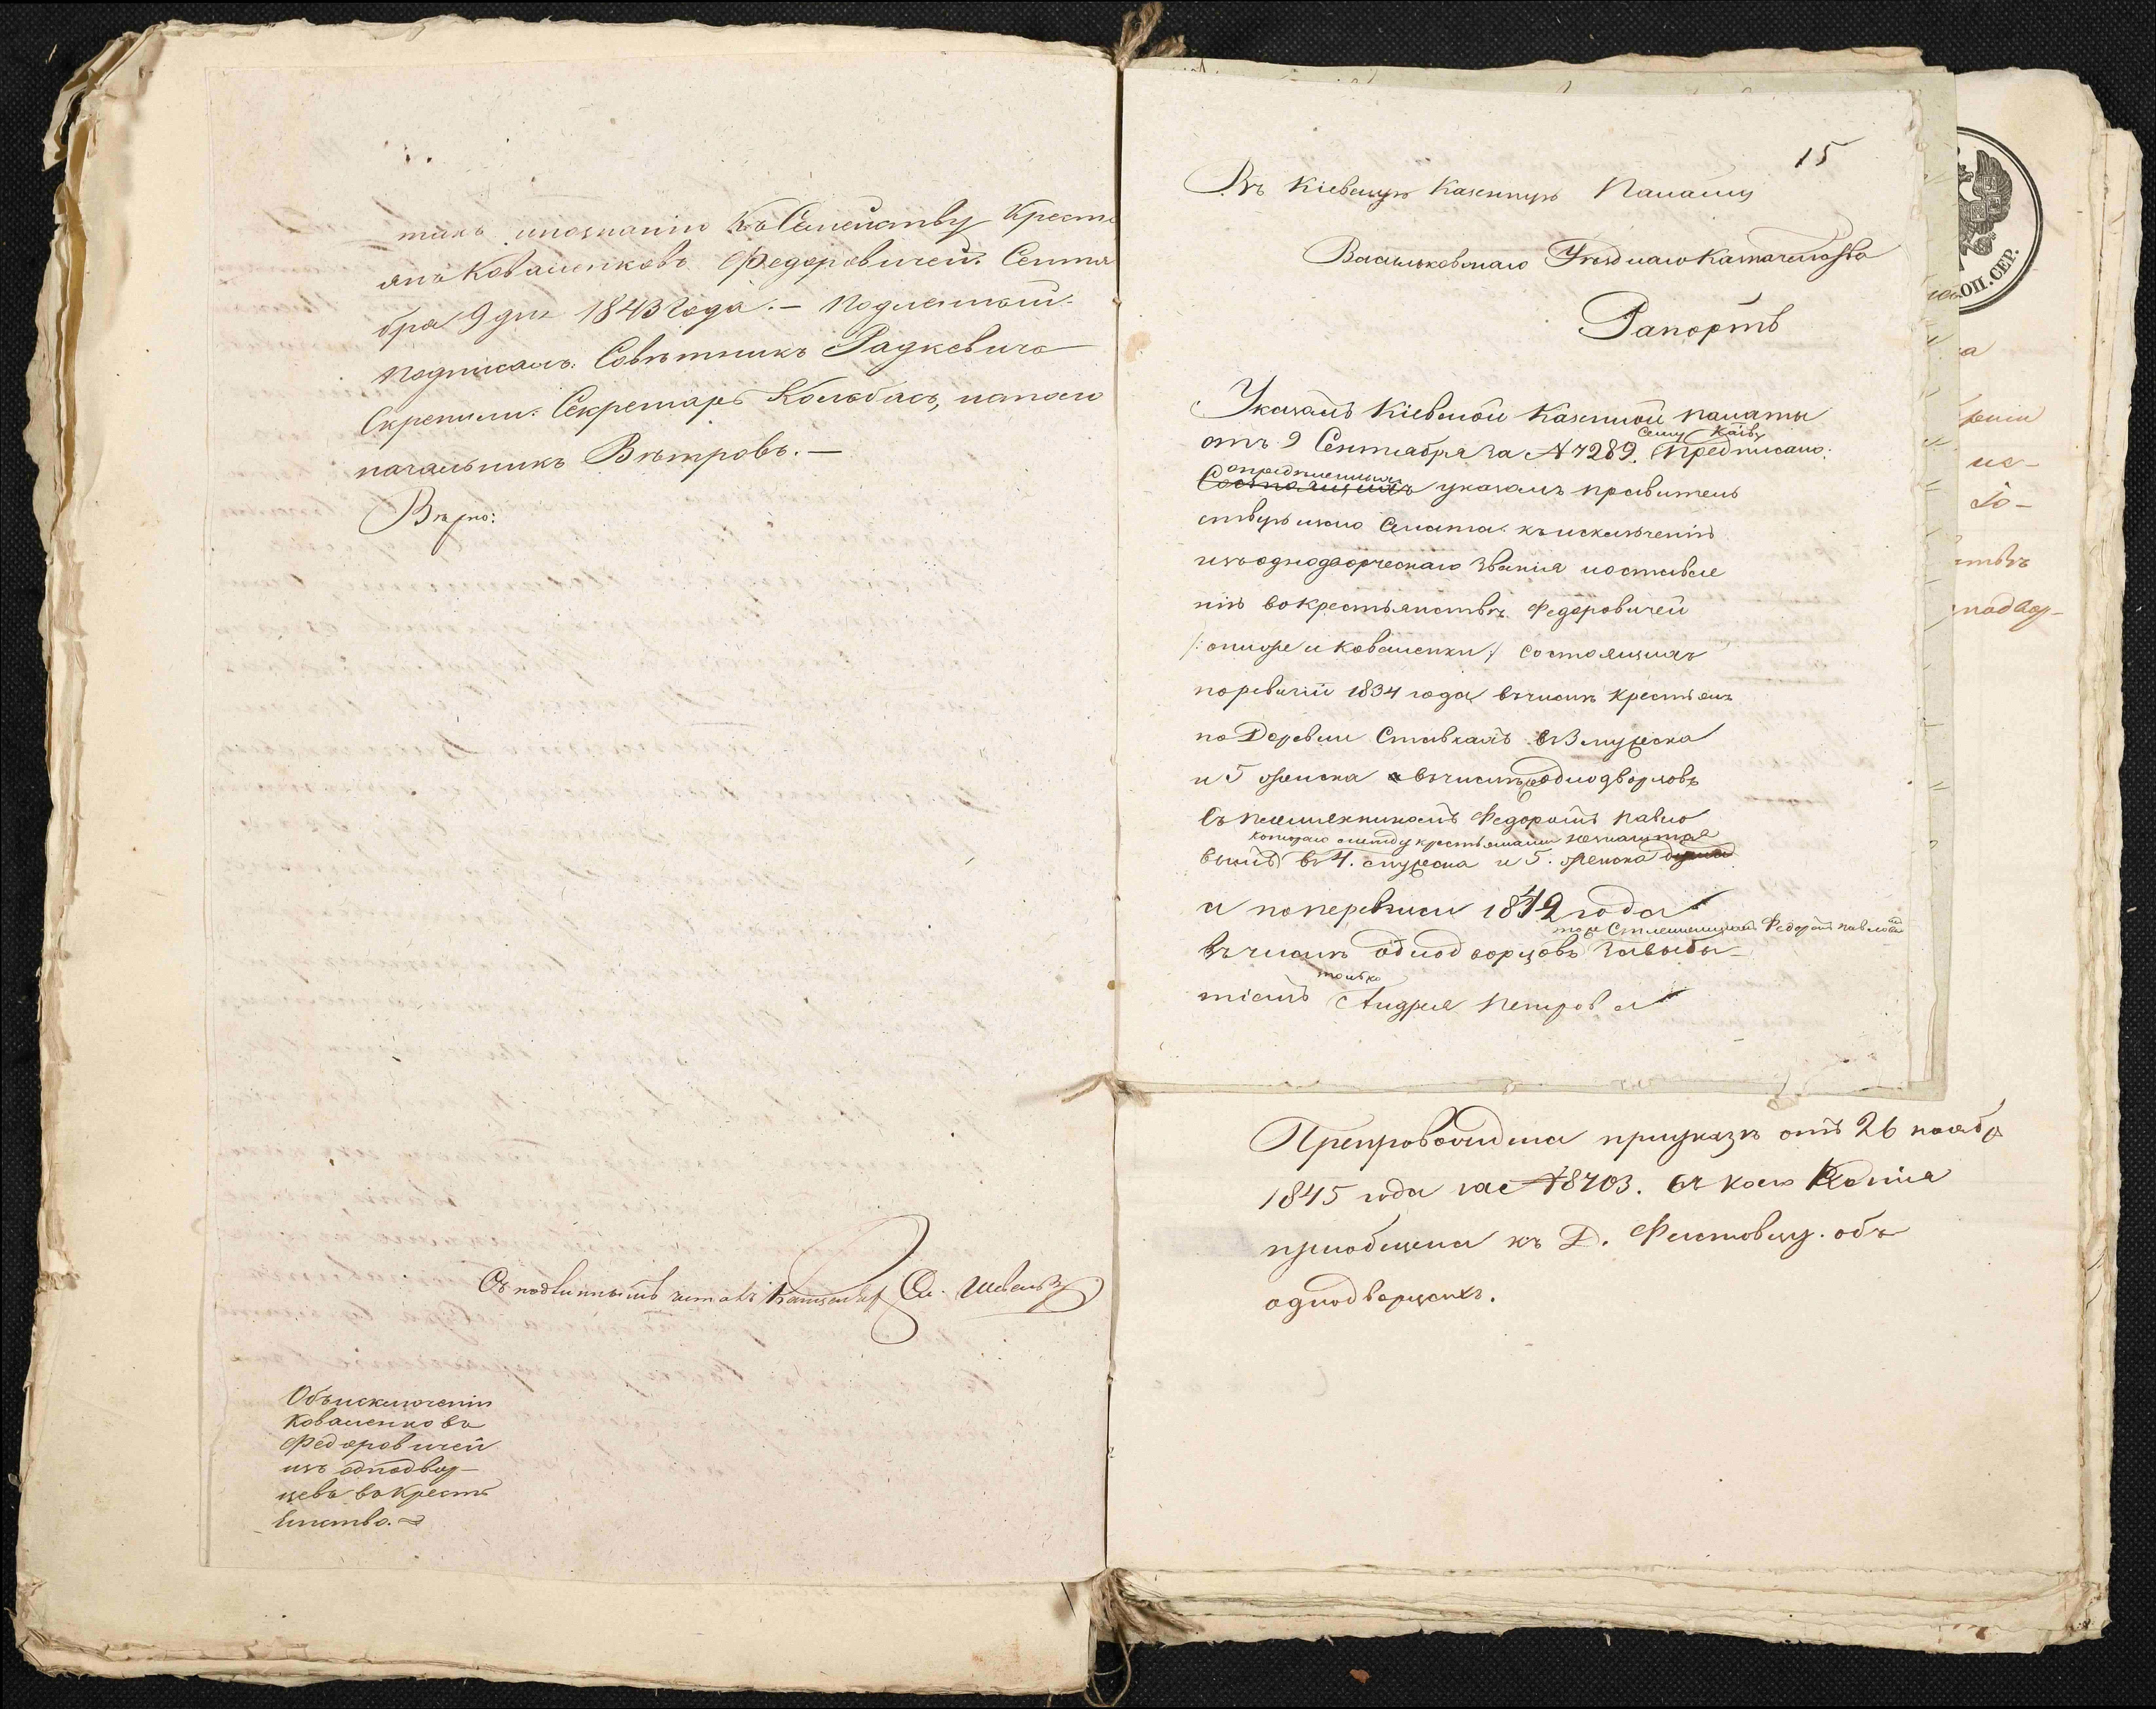 такъ и познанію къ Семейству Кресть
янъ Коваленковъ Федоровичей. Сентя
бра 9 дня 1843 года. — Подлинный
подписалъ: Совѣтникъ Радкевичъ
Скрепили: Секретарь Колѣбасъ, и столо
начальникъ Вѣтровъ. —
Вѣрно:
Съ подлиннымъ читалъ Канцеляр
Объ исключеніи
Коваленковъ
Федоровичей
изъ однодвор-
цевъ въ кресть
янство.
15
Въ Кіевскую Казенную Палату
Васильковскаго Уѣзднаго Казначейства
Рапортъ
Указомъ Кіевской Казенной палаты
отъ 9 Сентября за № 7289. сему Казву предписано:
опредѣленныхъ указомъ правитель
ствующаго Сената къ исключенію
изъ однодворческаго званія и оставле
нію въ крестьянствѣ Федоровичей
/: они же и Коваленки :/ состоящихъ
по ревизіи 1834 года въ числѣ крестьянъ
по Деревни Ставкамъ въ 3 мужеска
и 5 женска въ числѣ однодворцовъ
съ племянникомъ Федоромъ Павло
котораго между крестьянами не
вымъ въ 4. мужеска и 5. женска
и по переписи 1842 года
тоже съ племянникомъ Федоромъ Павловы
въ числѣ однодворцовъ за выбы-
только
тіемъ Андрея Петрова
Препровождена при указѣ отъ 26 ноябр
1845 года за № 8703. съ коего Копія
пріобщена къ Д. Фастовцу. объ
однодворцахъ.
ОП. СЕР.